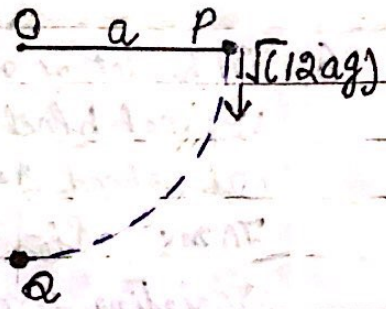 O a P
√(12ag)
Q